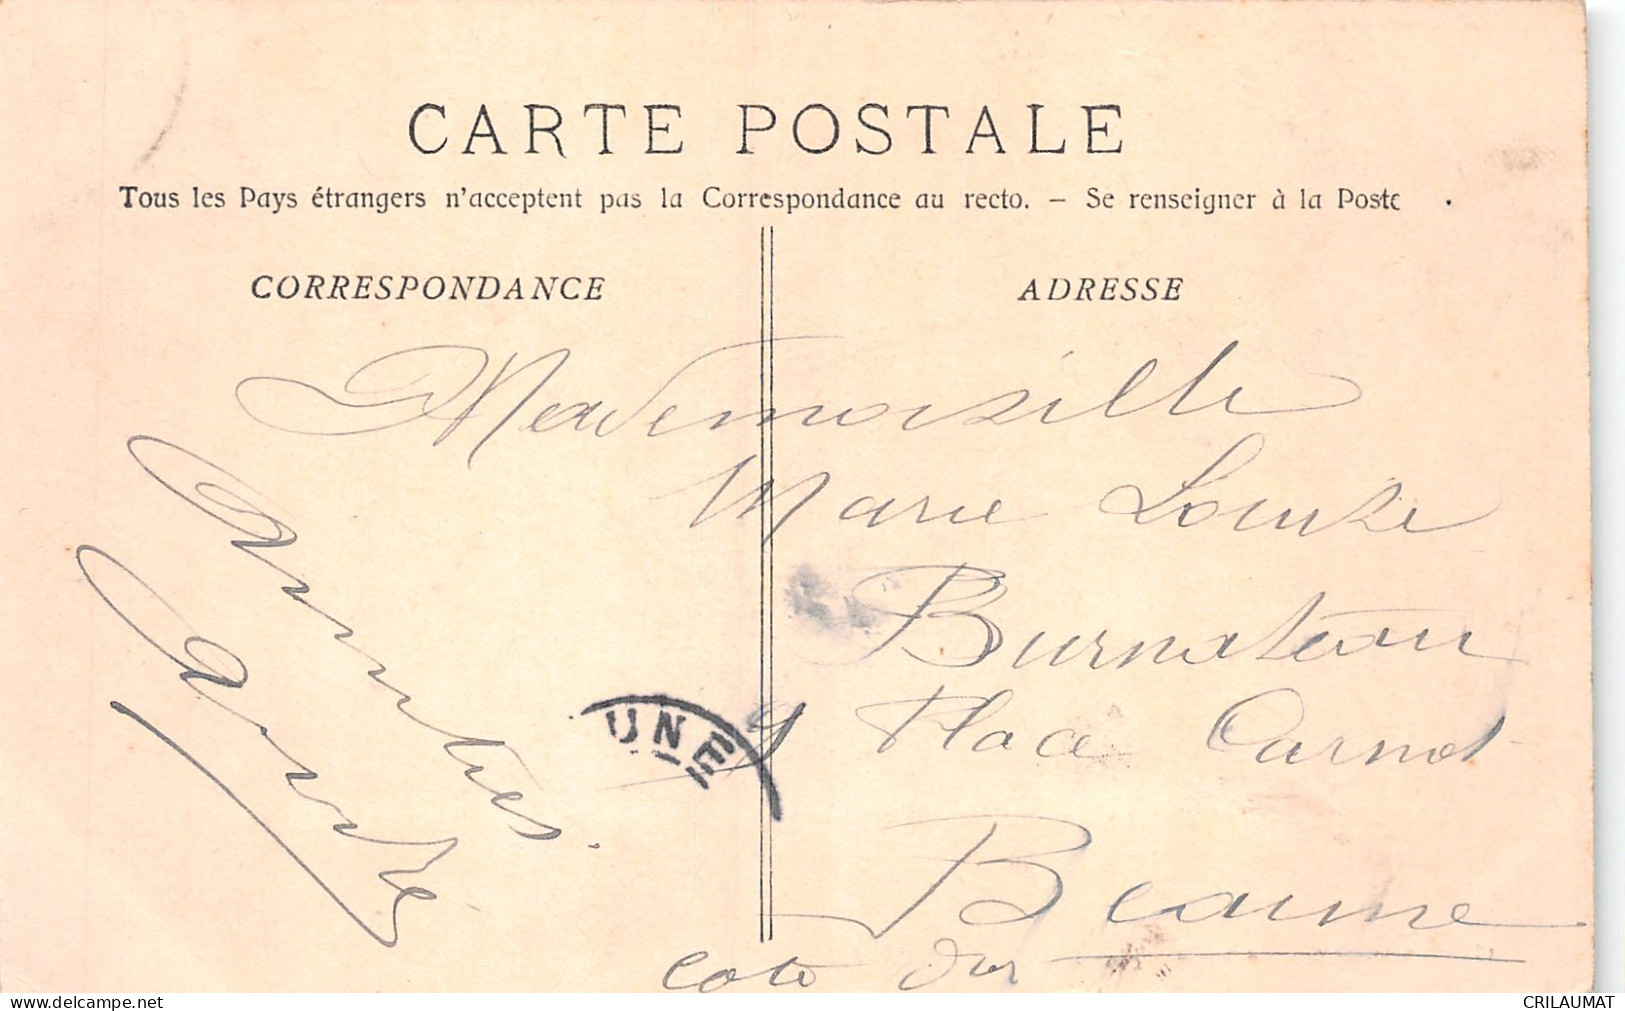 CARTE POSTALE
Tous les Pays étrangers n'acceptent pas la Correspondance au recto. — Se renseigner à la Poste
CORRESPONDANCE
ADRESSE
Mademoiselle
Marie Louise
Burnateau
9 Place Carnot
Beaune
Cote d'Or
Amities
UNE
www.delcampe.net
CRILAUMAT